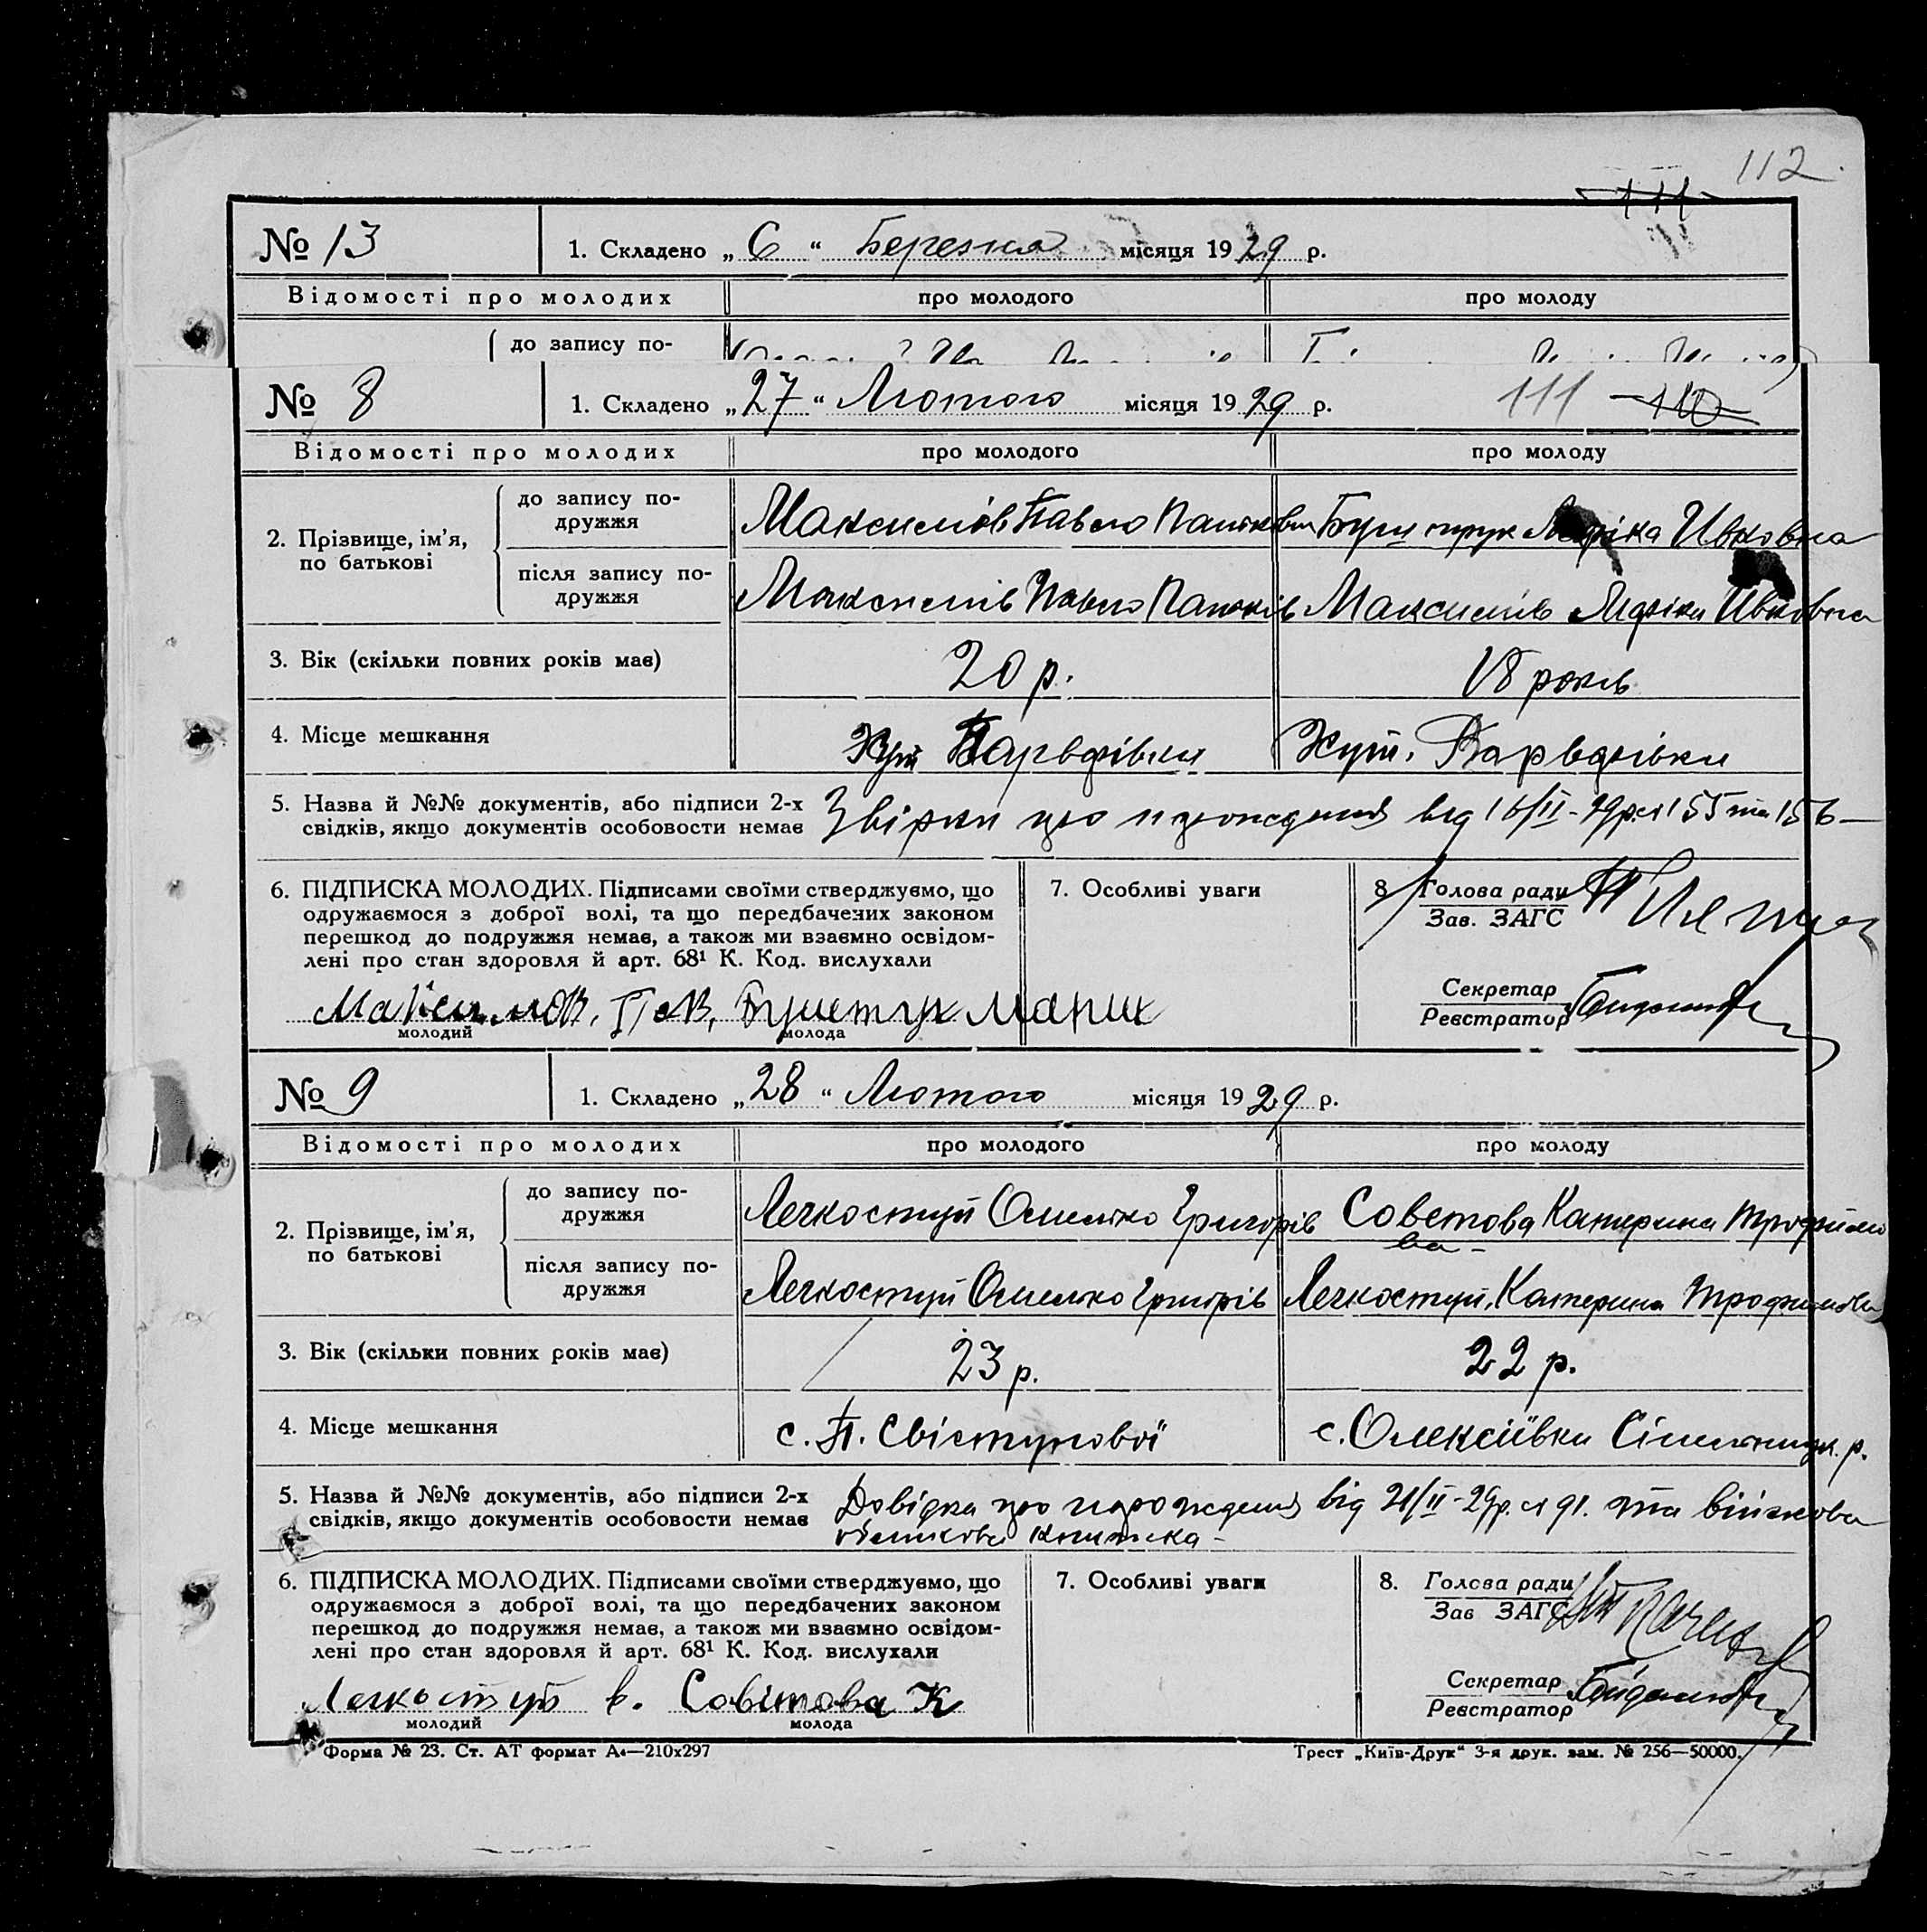 112
111
№ 13 1. Складено „6“ Березня місяця 1929 р.
Відомості про молодих про молодого про молоду
до запису по-
№ 8 1. Складено „27“ Лютого місяця 1929 р. 111 110
Відомості про молодих про молодого про молоду
2. Прізвище, ім'я, по батькові
до запису по-дружжя Максимів Павло Ивковна
після запису по-дружжя Максимів Павло Максимів Маріка Ивковна
3. Вік (скільки повних років має) 20 р. 18 років
4. Місце мешкання Хут Хут. Варвдрівки
5. Назва й №№ документів, або підписи 2-х
свідків, якщо документів особовости немає
від 16/II-29р. 155 та 156
6. ПІДПИСКА МОЛОДИХ. Підписами своїми стверджуємо, що
одружаємося з доброї волі, та що передбачених законом
перешкод до подружжя немає, а також ми взаємно освідом-
лені про стан здоровля й арт. 68¹ К. Код. вислухали
молодий молода
7. Особливі уваги
8 Голова ради
Зав. ЗАГС
Секретар
Реєстратор
№ 9 1. Складено „28“ Лютого місяця 1929 р.
Відомості про молодих про молодого про молоду
2. Прізвище, ім'я, по батькові
до запису по-дружжя Легкоступ Омелько Григорів Советова Катерина Трофимова
після запису по-дружжя Легкоступ Омелько Григорів Легкоступ Катерина Трофимова
3. Вік (скільки повних років має) 23 р. 22 р.
4. Місце мешкання с. П. Свістунової с. Олексіївки р.
5. Назва й №№ документів, або підписи 2-х Довідка про народження від 21/II-29р. 91. та військова
свідків, якщо документів особовости немає книжка
6. ПІДПИСКА МОЛОДИХ. Підписами своїми стверджуємо, що
одружаємося з доброї волі, та що передбачених законом
перешкод до подружжя немає, а також ми взаємно освідом-
лені про стан здоровля й арт. 68¹ К. Код. вислухали
Советова К
молодий молода
7. Особливі уваги
8. Голова ради
Зав ЗАГС
Секретар
Реєстратор
Форма № 23. Ст. АТ формат А4—210x297 Трест „Київ-Друк“ 3-я друк. зам. № 256—50000.